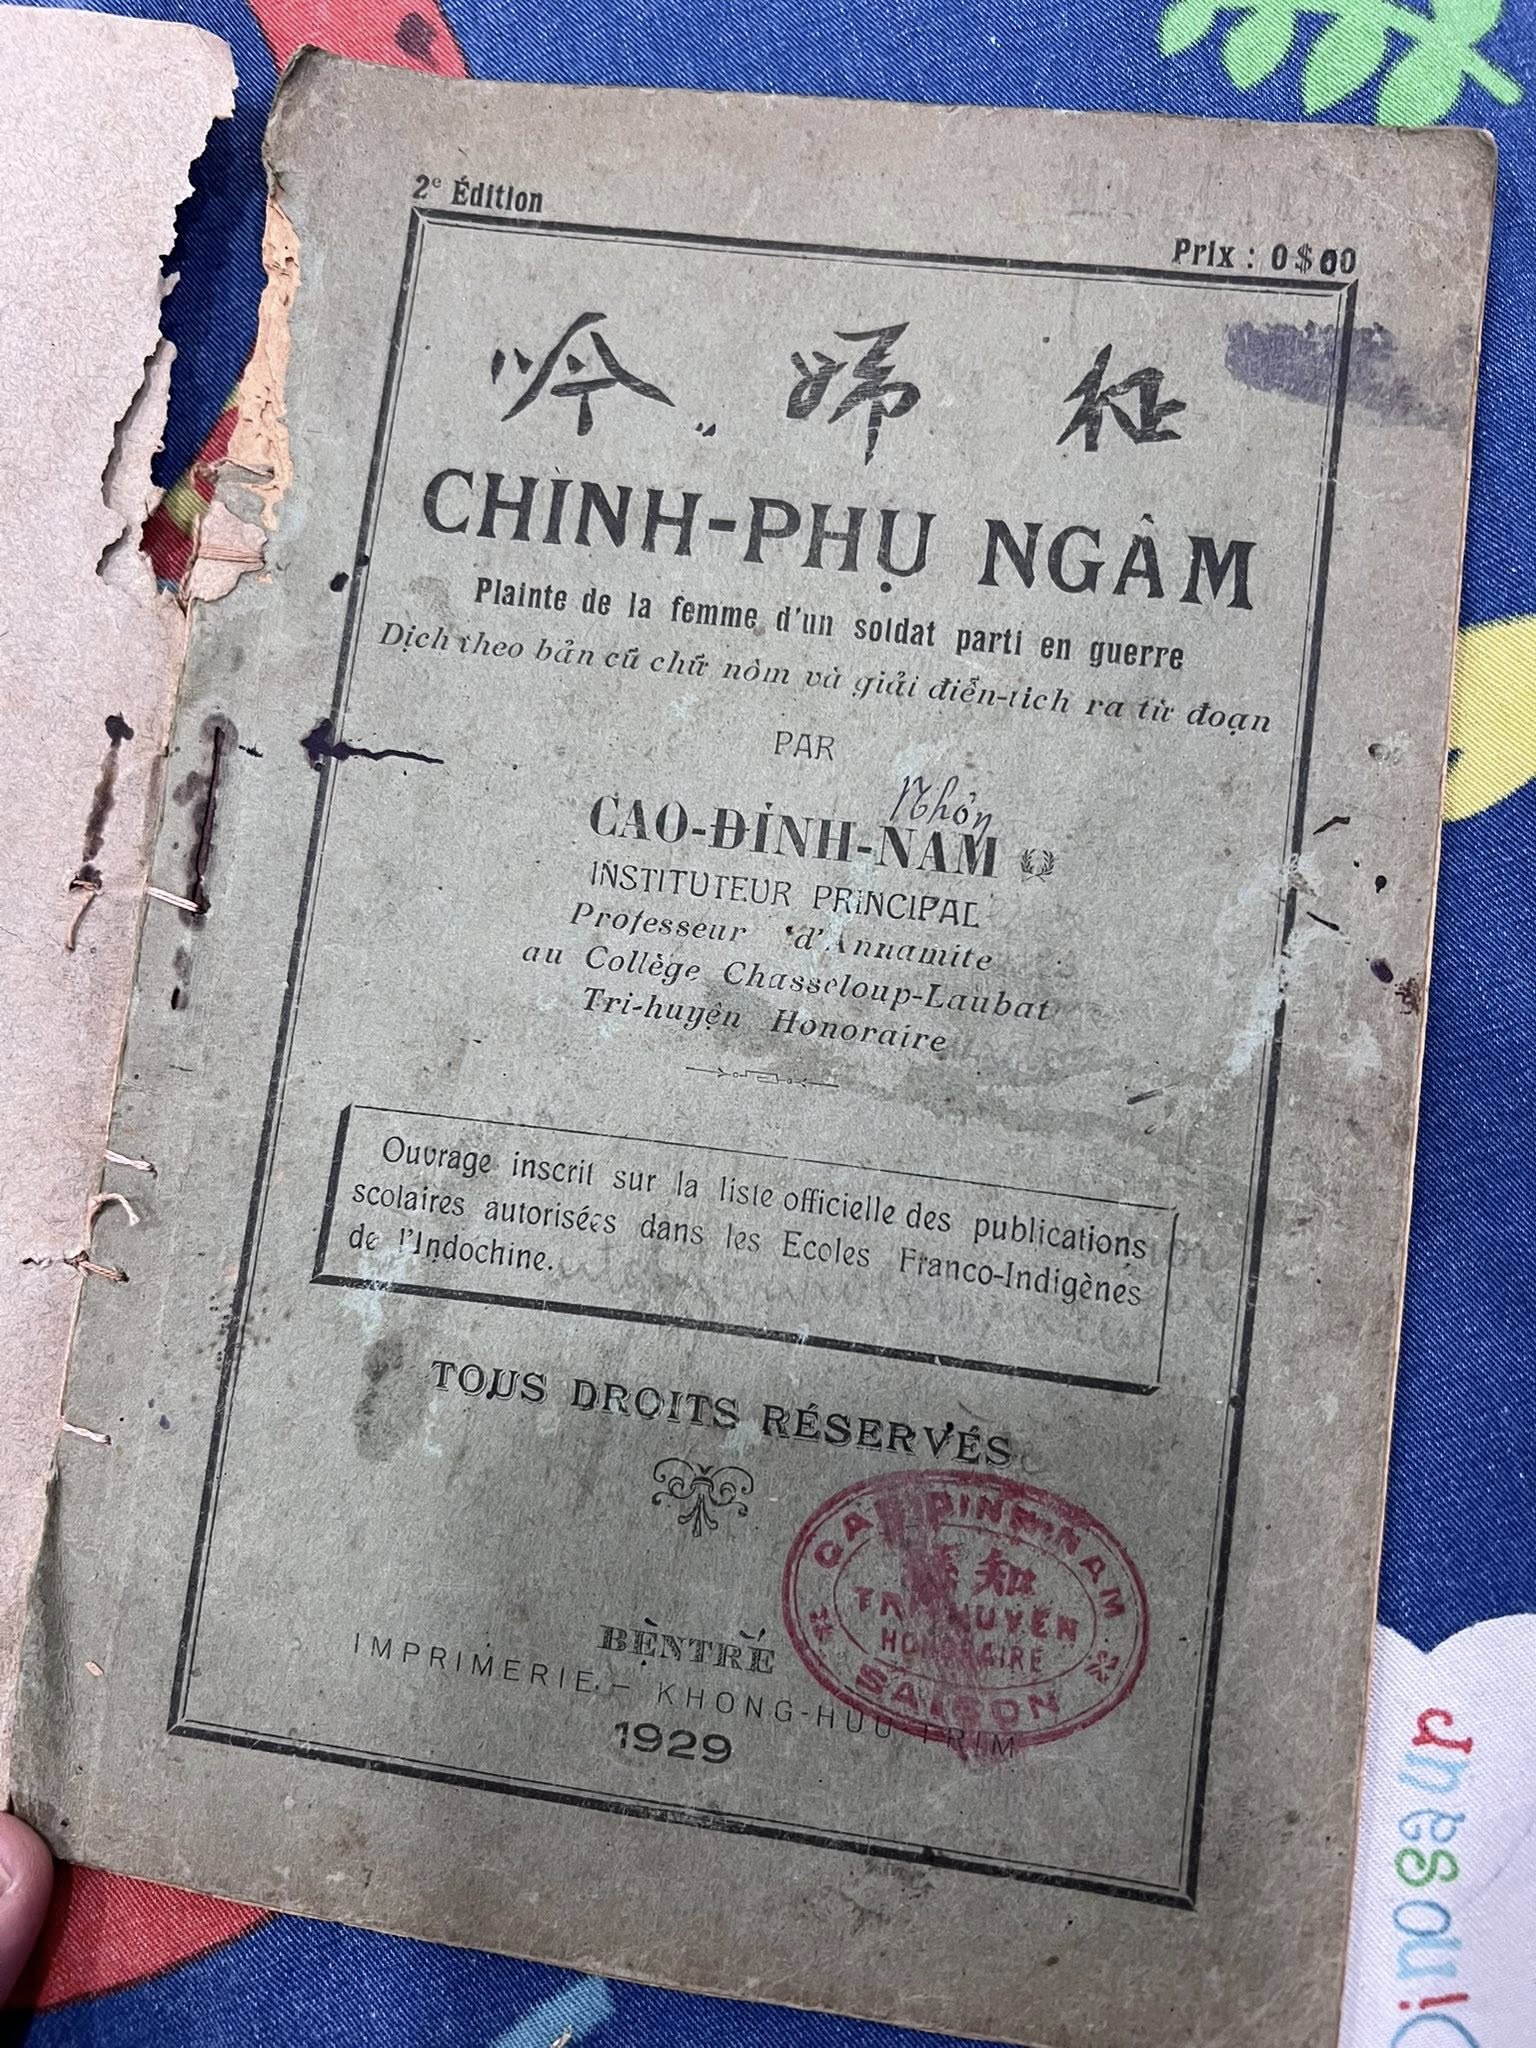 2e Édition
Prix : 0$60
征 婦 吟
CHÌNH-PHỤ NGÂM
Plainte de la femme d'un soldat parti en guerre
Dịch theo bản cũ chữ nôm và giải điển-tích ra từ đoạn
PAR
Nhỏn
CAO-ĐÌNH-NAM
INSTITUTEUR PRINCIPAL
Professeur d'Annamite
au Collège Chasseloup-Laubat
Tri-huyện Honoraire
Ouvrage inscrit sur la liste officielle des publications
scolaires autorisées dans les Ecoles Franco-Indigènes
de l'Indochine.
TOUS DROITS RÉSERVÉS
CAO DINH NAM
知
TRI HUYEN
HONORAIRE
SAIGON
BÊNTRÉ
IMPRIMERIE — KHONG-HUU-TRIM
1929
Dinosaur